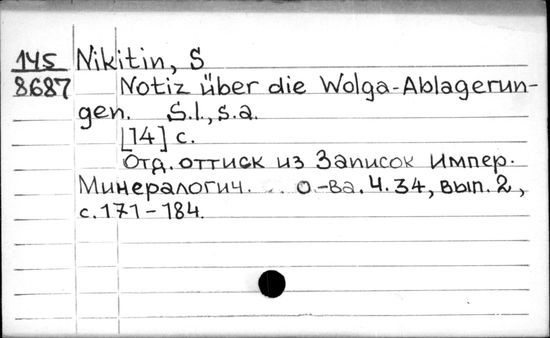 145 Nikitin, S
8687 Notiz über die Wolga-Ablagerun-
gen. S.l., s.a.
[14] с.
Отд. оттиск из Записок Импер.
Минералогич. о-ва. Ч. 34, вып. 2,
с. 171-184.